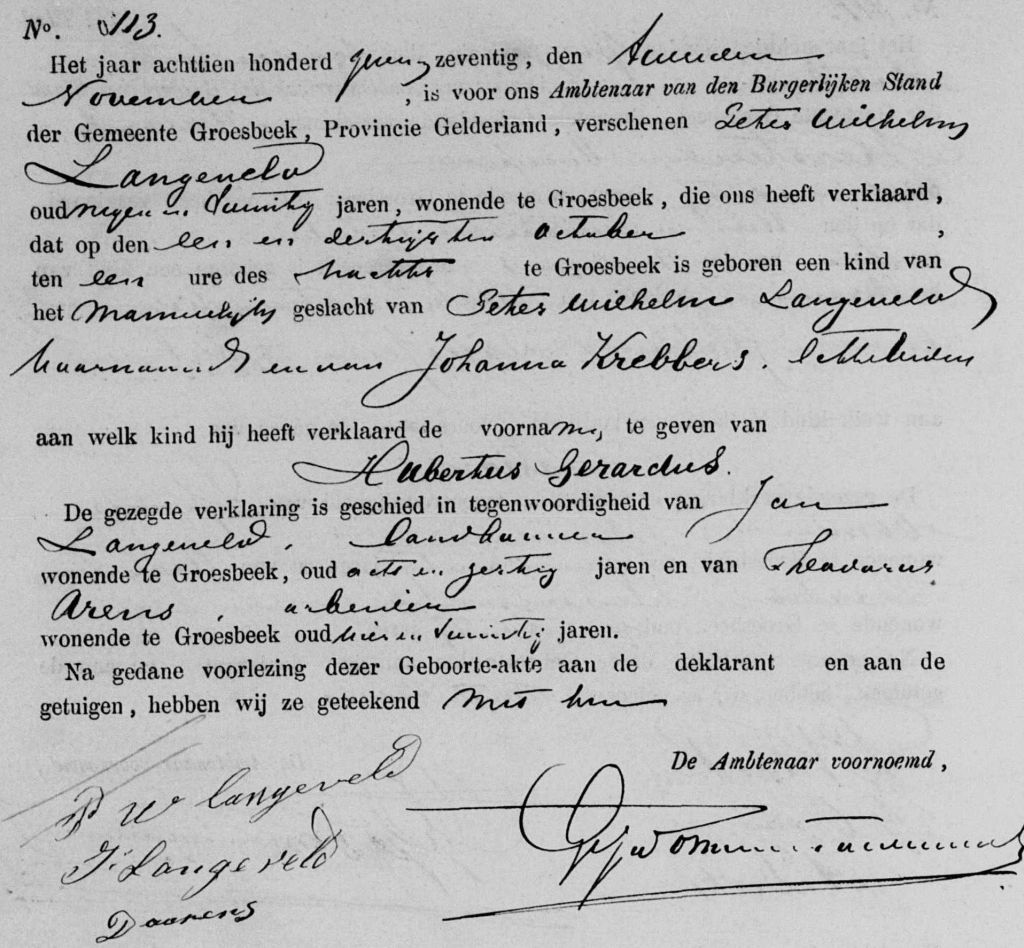 No. 113.
Het jaar achttien honderd zeventig, den tweeden
November, is voor ons Ambtenaar van den Burgerlijken Stand
der Gemeente Groesbeek, Provincie Gelderland, verschenen Peter Wilhelm
Langeveld
oud negen en twintig jaren, wonende te Groesbeek, die ons heeft verklaard,
dat op den een en dertigsten october,
ten een ure des nachts te Groesbeek is geboren een kind van
het mannelijk geslacht van Peter Wilhelm Langeveld
voornoemd en van Johanna Krebbers. echtelieden
aan welk kind hij heeft verklaard de voornamen, te geven van
Hubertus Gerardus.
De gezegde verklaring is geschied in tegenwoordigheid van Jan
Langeveld, landbouwer
wonende te Groesbeek, oud acht en zestig jaren en van Theodorus
Arens, arbeider
wonende te Groesbeek oud vier en twintig jaren.
Na gedane voorlezing dezer Geboorte-akte aan de deklarant en aan de
getuigen, hebben wij ze geteekend met hen
De Ambtenaar voornoemd,
P W Langeveld
J Langeveld
D aarens